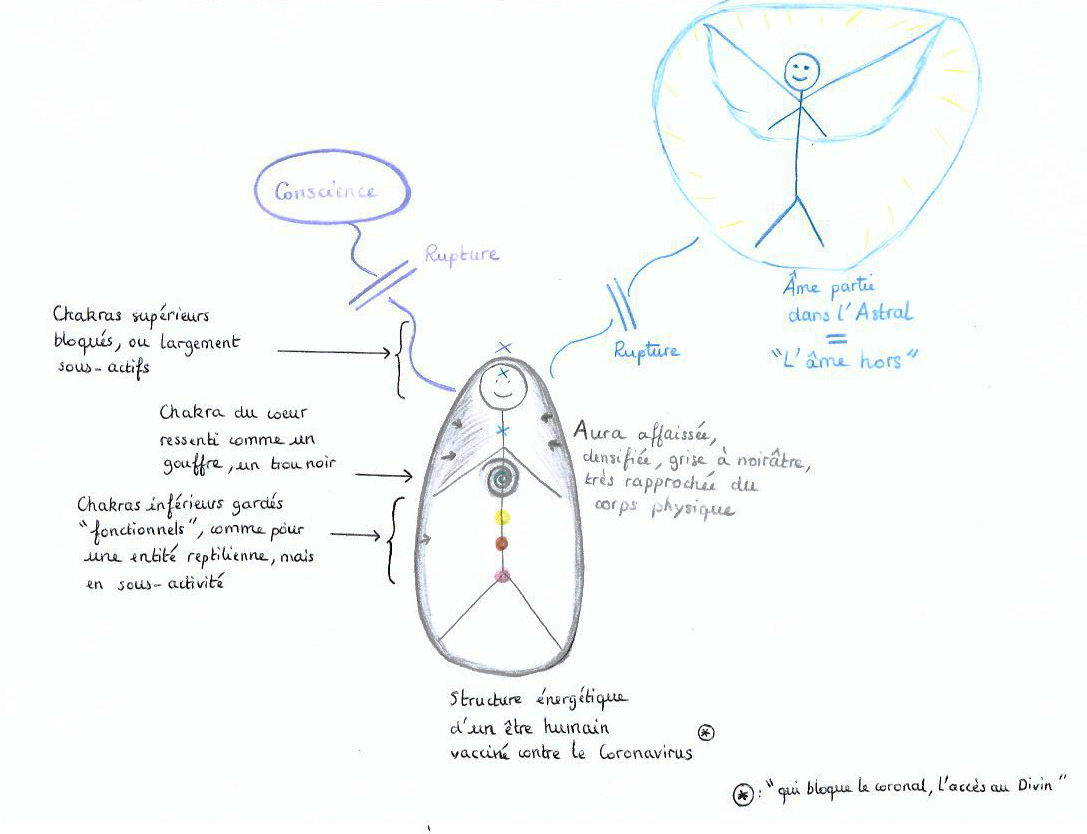 Conscience
Rupture
Âme partie
dans l'Astral
=
"L'âme hors"
Rupture
Chakras supérieurs
bloqués, ou largement
sous-actifs
Chakra du coeur
ressenti comme un
gouffre, un trou noir
Aura affaissée,
densifiée, grise à noirâtre,
très rapprochée du
corps physique
Chakras inférieurs gardés
"fonctionnels", comme pour
une entité reptilienne, mais
en sous-activité
Structure énergétique
d'un être humain
vacciné contre le Coronavirus *
* : "qui bloque le coronal, l'accès au Divin"